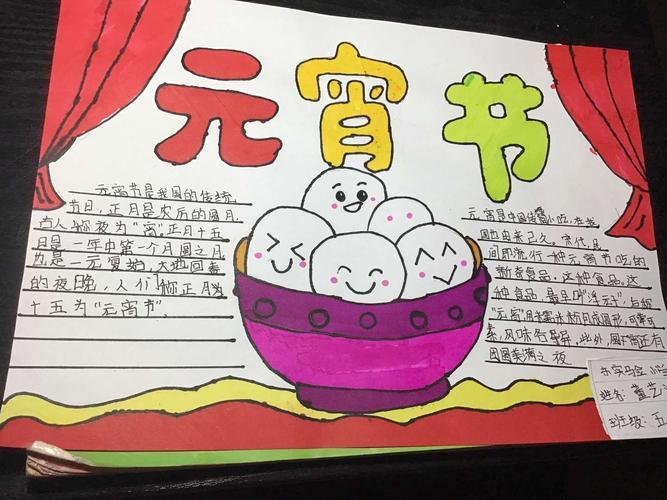 元宵节
元宵节是我国的传统
节日,正月是农历的圆月
古人称夜为"宵"正月十五
日是一年中第一个月圆之月
也是一元复始,大地回春
的夜晚,人们称正月为
十五为"元宵节".
元宵是中国传统小吃,在我
国由来已久。宋代,民
间即流行一种元宵节吃的
新奇食品。这种食品。这
种食品,最早叫"浮元子",后称
"元宵"用米粉包成圆形,可荤可
素,风味各异。此外,圆宵还有
团圆美满之夜
小学
姓名:艺
班级:五